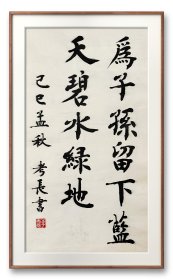 為子孫留下藍
天碧水綠地
己巳孟秋 考長書